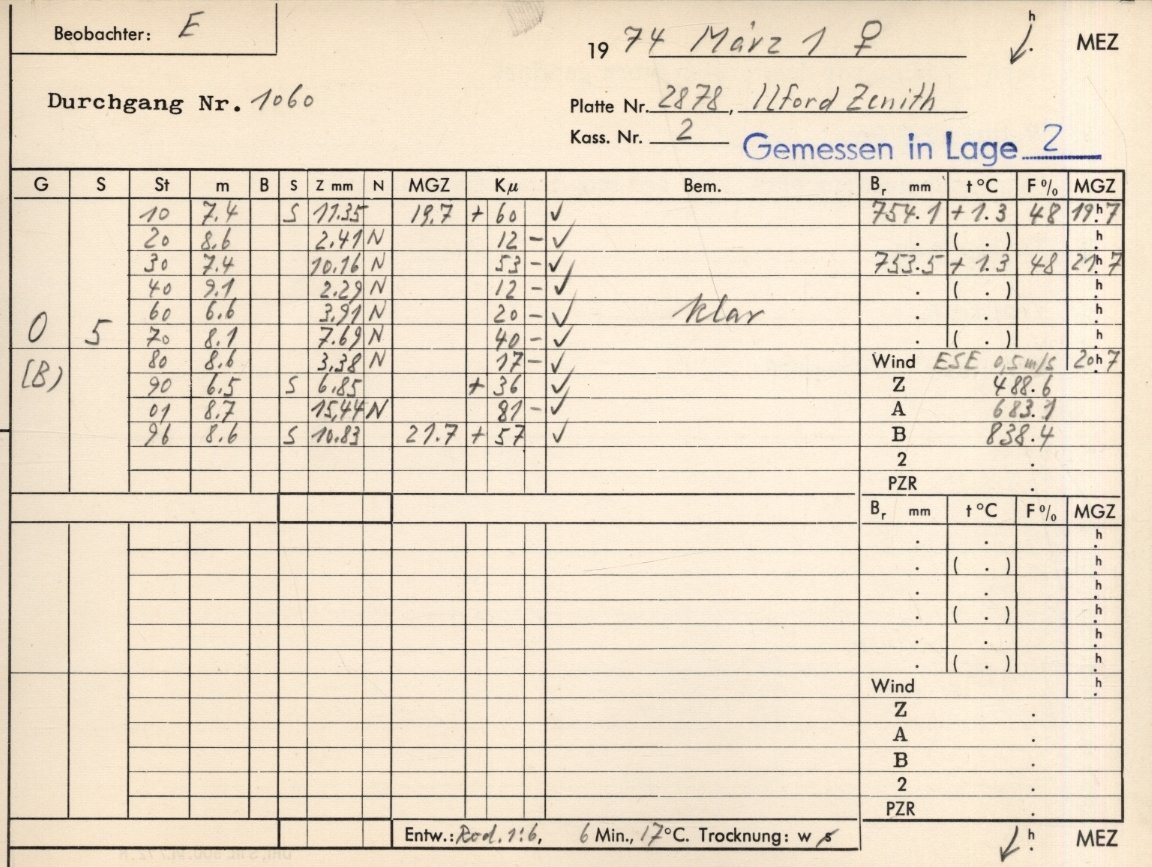 Beobachter: E
19 74 März 1 ♀ h . MEZ
Durchgang Nr. 1060
Platte Nr. 2878, Ilford Zenith
Kass. Nr. 2
Gemessen in Lage 2
G S St m B S Z mm N MGZ Kµ Bem. Br mm t °C F % MGZ
10 7.4 S 11.35 19.7 + 60 ✓ 754.1 + 1.3 48 19h.7
20 8.6 2.41 N 12 - ✓ . ( . ) h.
30 7.4 10.16 N 53 - ✓ 753.5 + 1.3 48 21h.7
40 9.1 2.29 N 12 - ✓ . ( . ) h.
60 6.6 3.91 N 20 - ✓ klar . . h.
O 5 70 8.1 7.69 N 40 - ✓ . ( . ) h.
(B) 80 8.6 3.38 N 17 - ✓ Wind ESE 0,5 m/s 20h.7
90 6.5 S 6.85 + 36 ✓ Z 488.6
01 8.7 15.44 N 81 - ✓ A 683.1
96 8.6 S 10.83 21.7 + 57 ✓ B 838.4
2 .
PZR .
Br mm t °C F % MGZ
. . h.
. ( . ) h.
. . h.
. ( . ) h.
. . h.
. ( . ) h.
Wind h.
Z .
A .
B .
2 .
PZR .
Entw.: Rod. 1:6, 6 Min., 17°C. Trocknung: w s h . MEZ